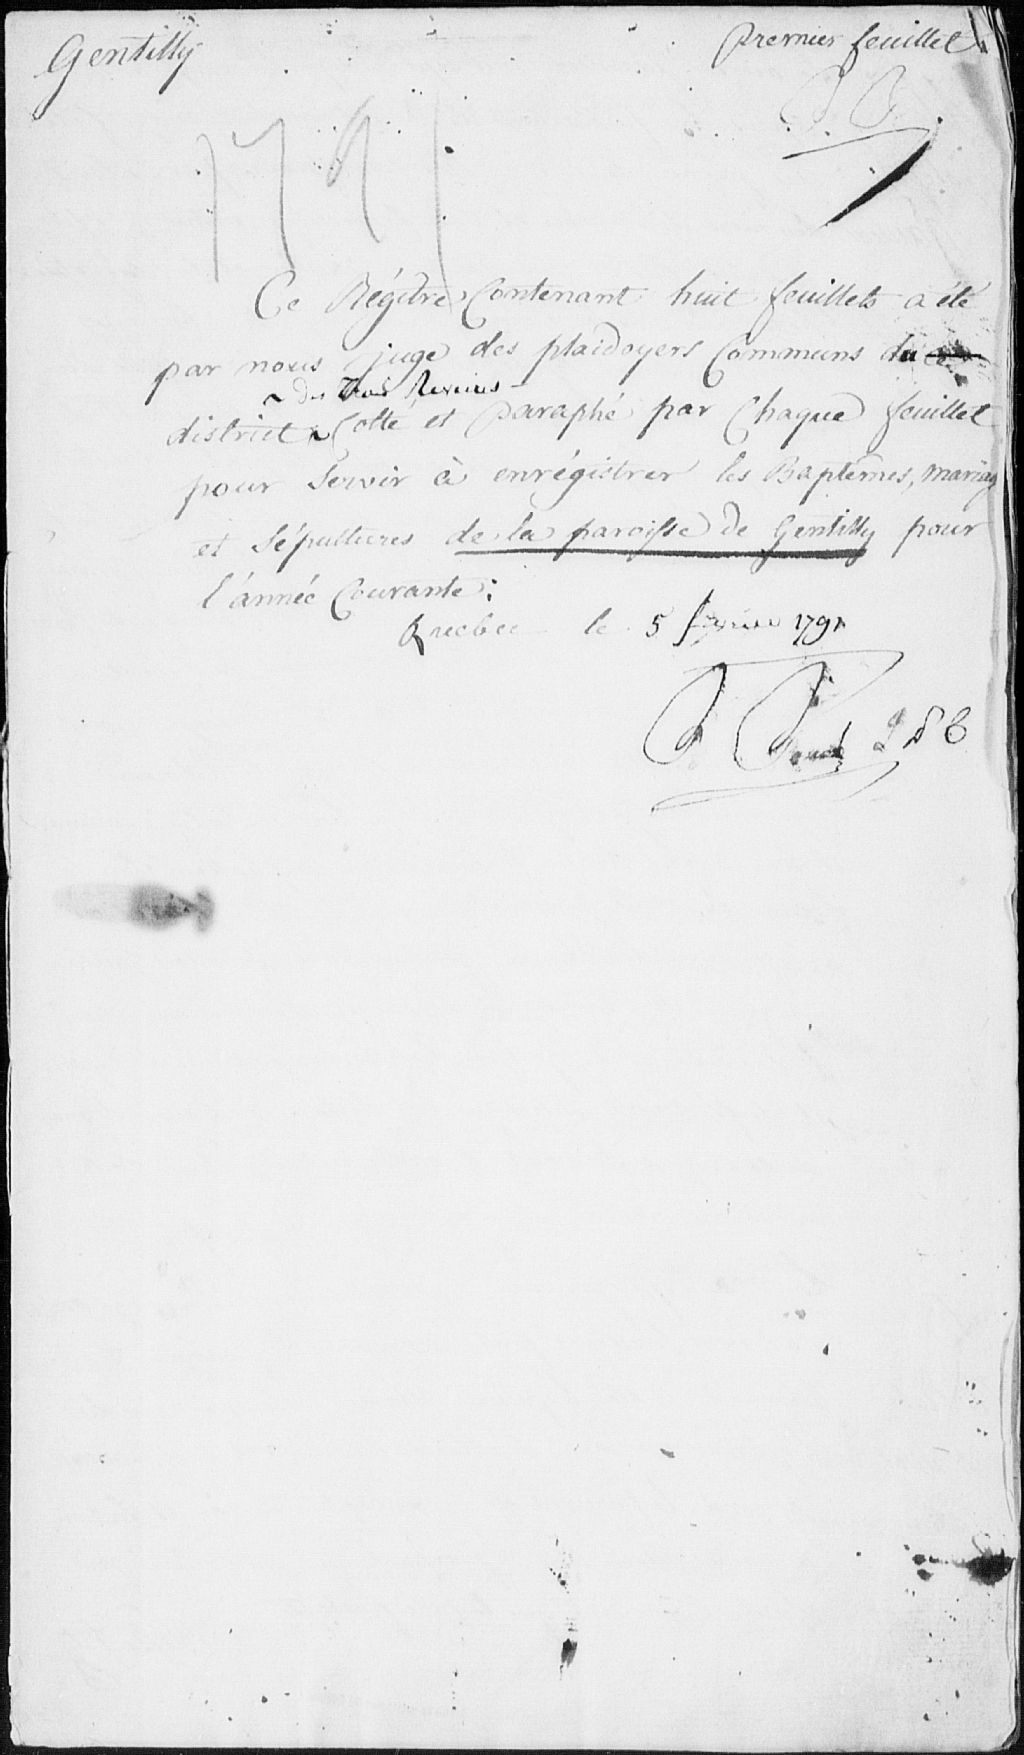 Gentilly
premier feuillet
1791
Ce Régitre Contenant huit feuillets a été
par nous juge des plaidoyers Communs du
des Trois Rivieres
district Cotté et paraphé par Chaque feuillet
pour Servir à enrégistrer les Baptêmes, mariag
et Sépultures de la paroisse de Gentilly pour
l'année Courante:
Quebec le 5 février 1791